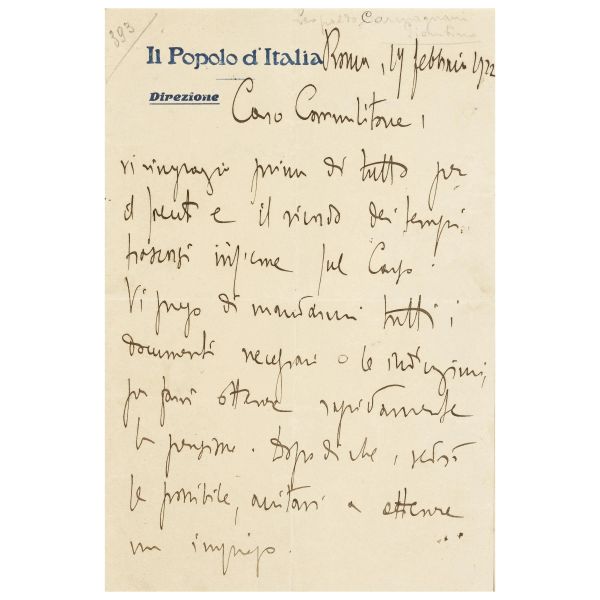 393
Campagnani
Il Popolo d'Italia
Roma, 19 febbraio 1922
Direzione
Caro Commilitone,
vi ringrazio prima di tutto per
il e il ricordo dei tempi
trascorsi insieme sul Carso.
Vi prego di mandarmi tutti i
documenti necessari o le indicazioni,
per farvi ottenere rapidamente
la pensione. Dopo di che, vedrò
se possibile, aiutarvi a ottenere
un impiego.